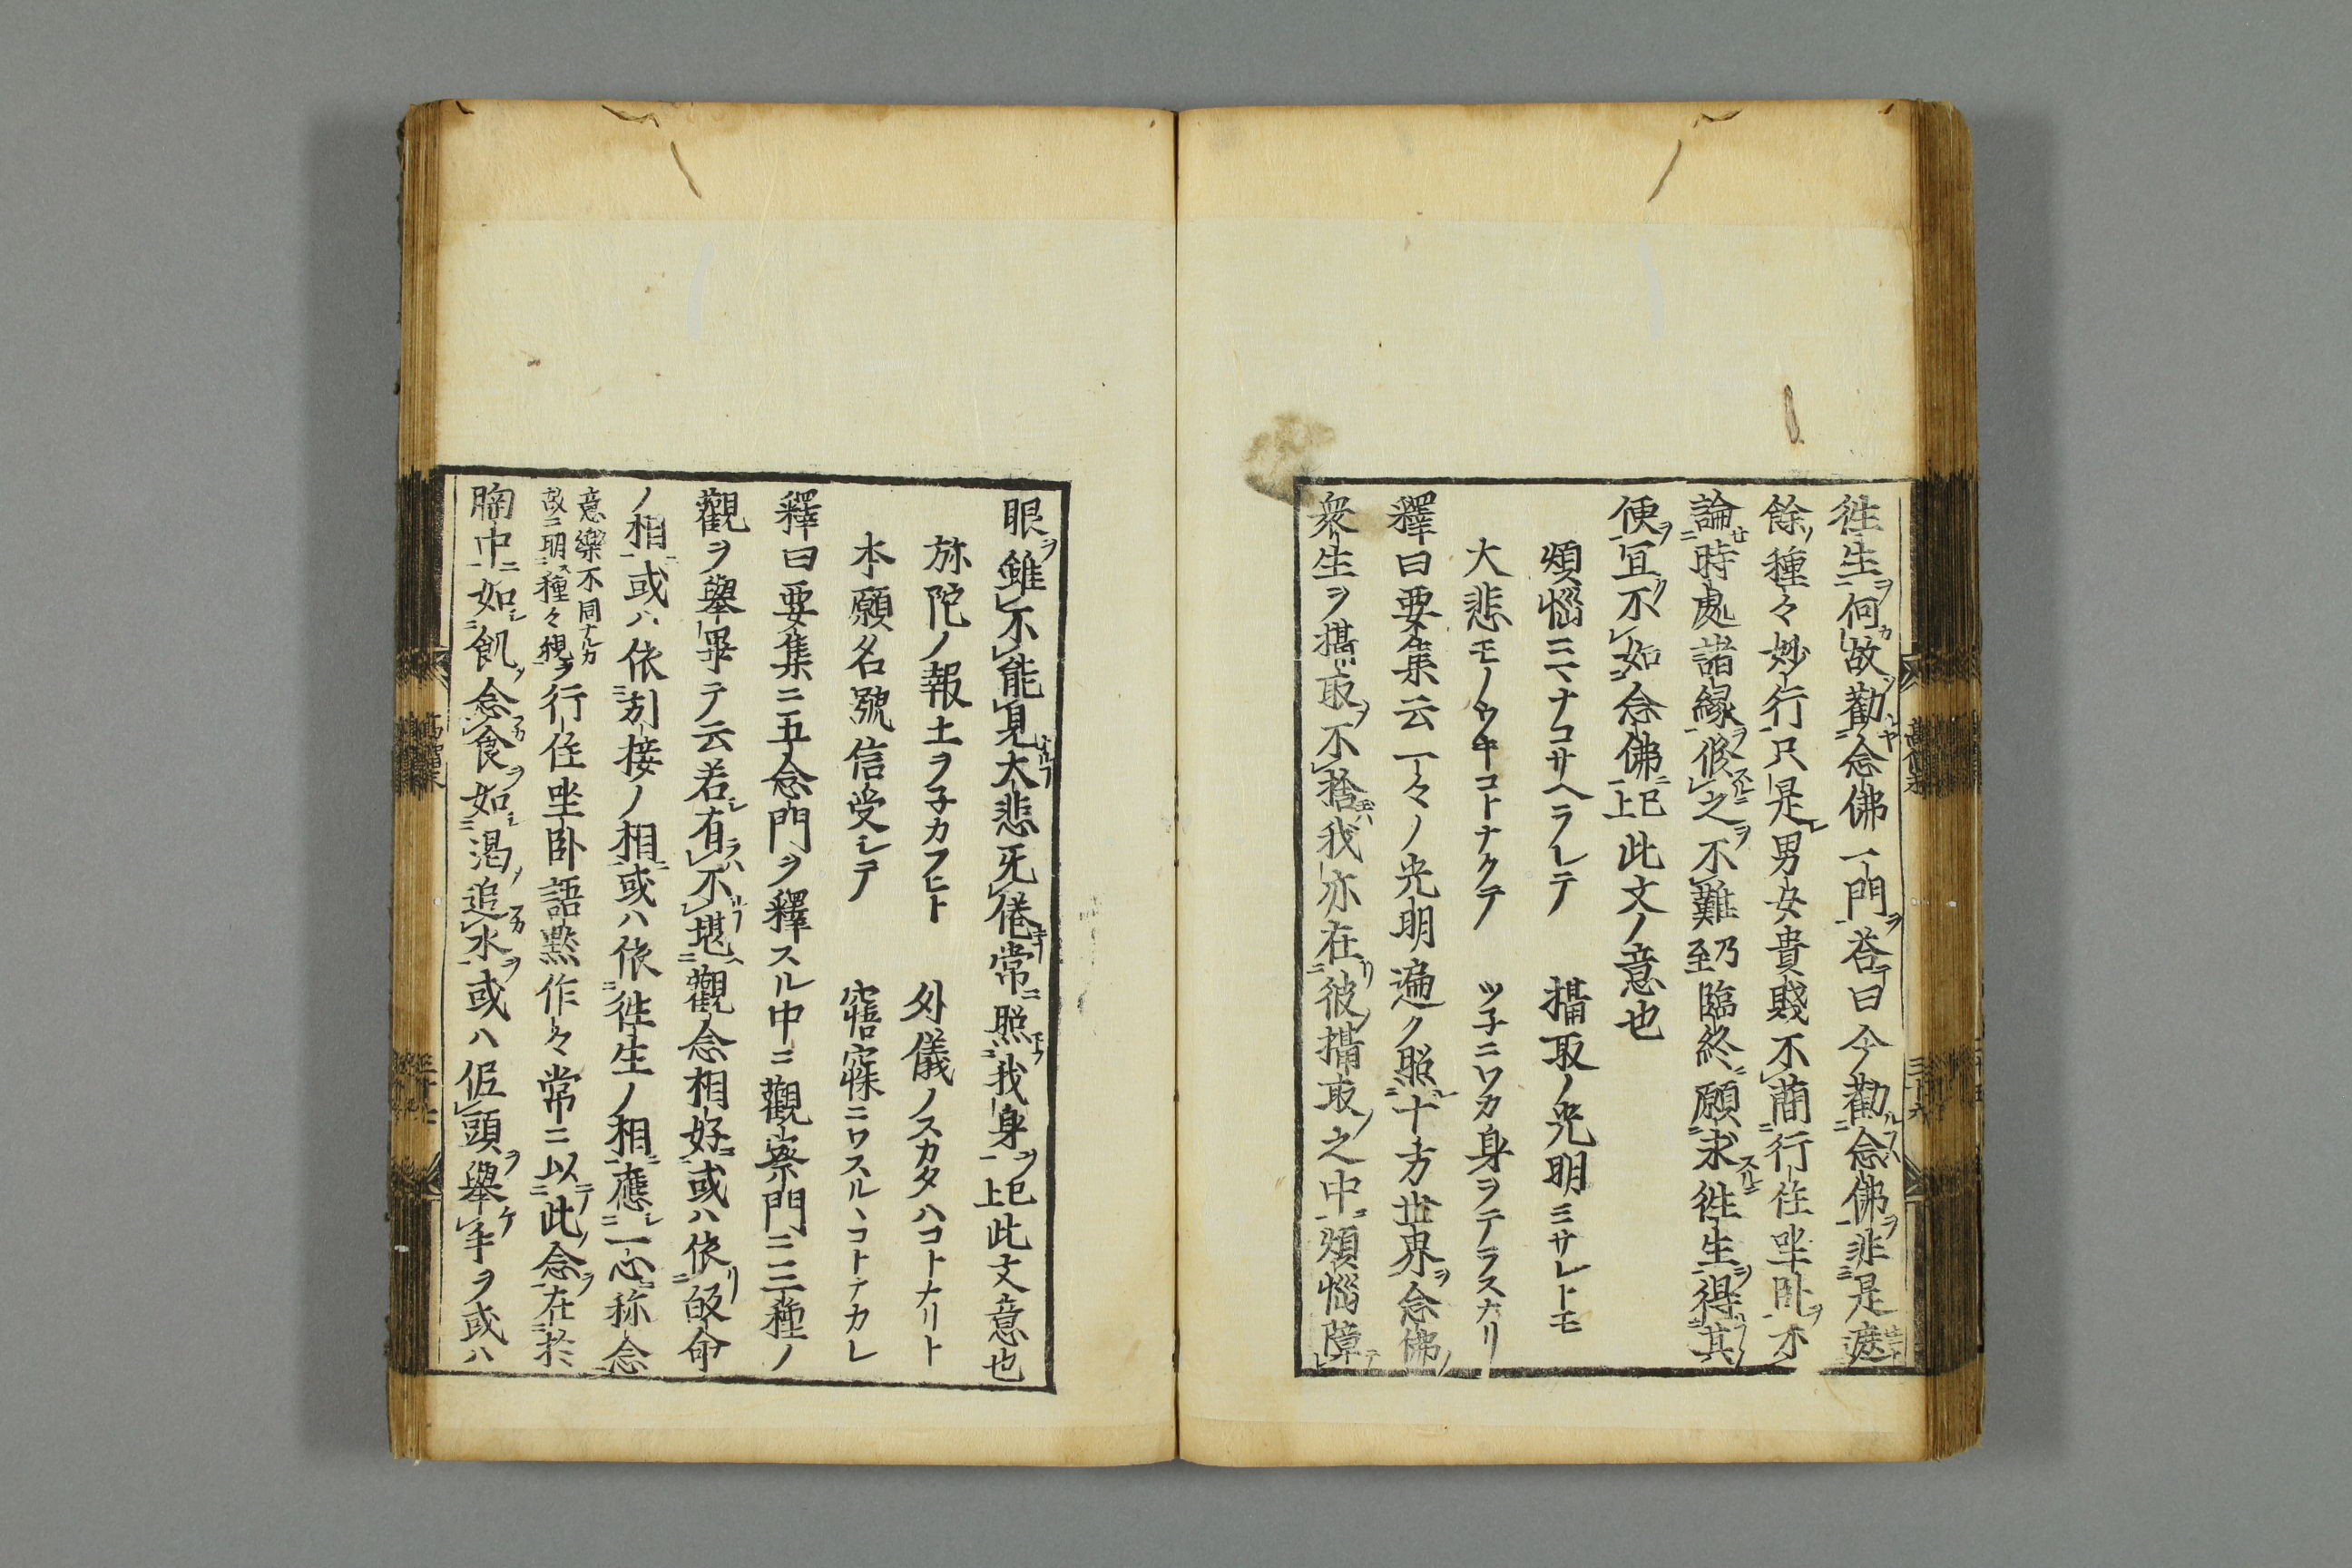 徃生ヲ何カ故ソ勸シヤ念佛一門ヲ荅テ曰今勸ルフハ念佛ヲ非是遮
餘ノ種々妙行只是レ男女貴賤不蕳行住坐卧ヲ不
論セ時處諸縁ヲ修スルニ之ヲ不難乃至臨終ニ願求スルニ徃生ヲ得ラ其ノ
便ヲ冝リ不如念佛ニ已上此文ノ意也
煩惱ニマナコサヘラレテ 攝取ノ光明ミサレトモ
大悲モノウキコトナクテ ツ子ニワカ身ヲテラスナリ
釋曰要集云一々ノ光明遍ク照レ十方世界ヲ念佛ノ
衆生ヲ攝取ヲ不捨玉ハ我亦在リ彼ノ攝取ノ之中ニ煩惱障テ
眼ヲ雖不能見大悲旡倦常ニ照玉フ我身ヲ已上此文意也
弥陀ノ報土ヲ子カフヒト 外儀ノスカタハコトナリト
本願名號信受シテ 寤寐ニワスルヽコトナカレ
釋曰要集ニ五念門ヲ釋スル中ニ觀察門ニ三種ノ
觀ヲ擧畢テ云若シ有ラハ不堪ニ觀念相好ニ或ハ依リ皈命
ノ相ニ或ハ依引接ノ相ニ或ハ依徃生ノ相ニ應シ一心ニ称念
意樂不同ナルカ
故ニ明ス種々觀ヲ行住坐卧語黙作々常ニ以テ此ノ念ヲ在於
胸中ニ如シ飢ノ念食ヲ如シ渇ノ追水ヲ或ハ低頭ヲ擧ケ手ヲ或ハ